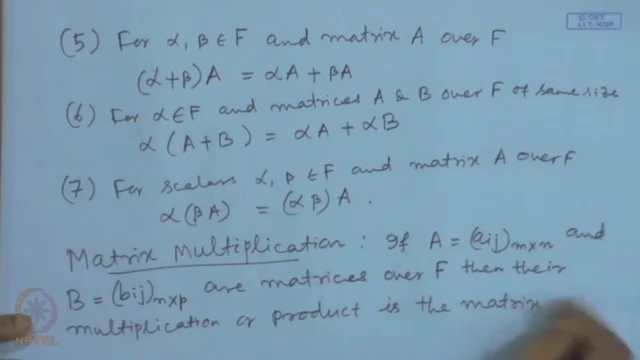 © CET
I.I.T. KGP
(5) For α, β ∈ F and matrix A over F
(α+β)A = αA + βA
(6) For α∈F and matrices A & B over F of same size
α(A+B) = αA + αB
(7) For scalars α, β ∈ F and matrix A over F
α(βA) = (αβ)A.
Matrix Multiplication: If A = (aij)m×n and
B = (bij)n×p are matrices over F then their
multiplication or product is the matrix
NPTEL